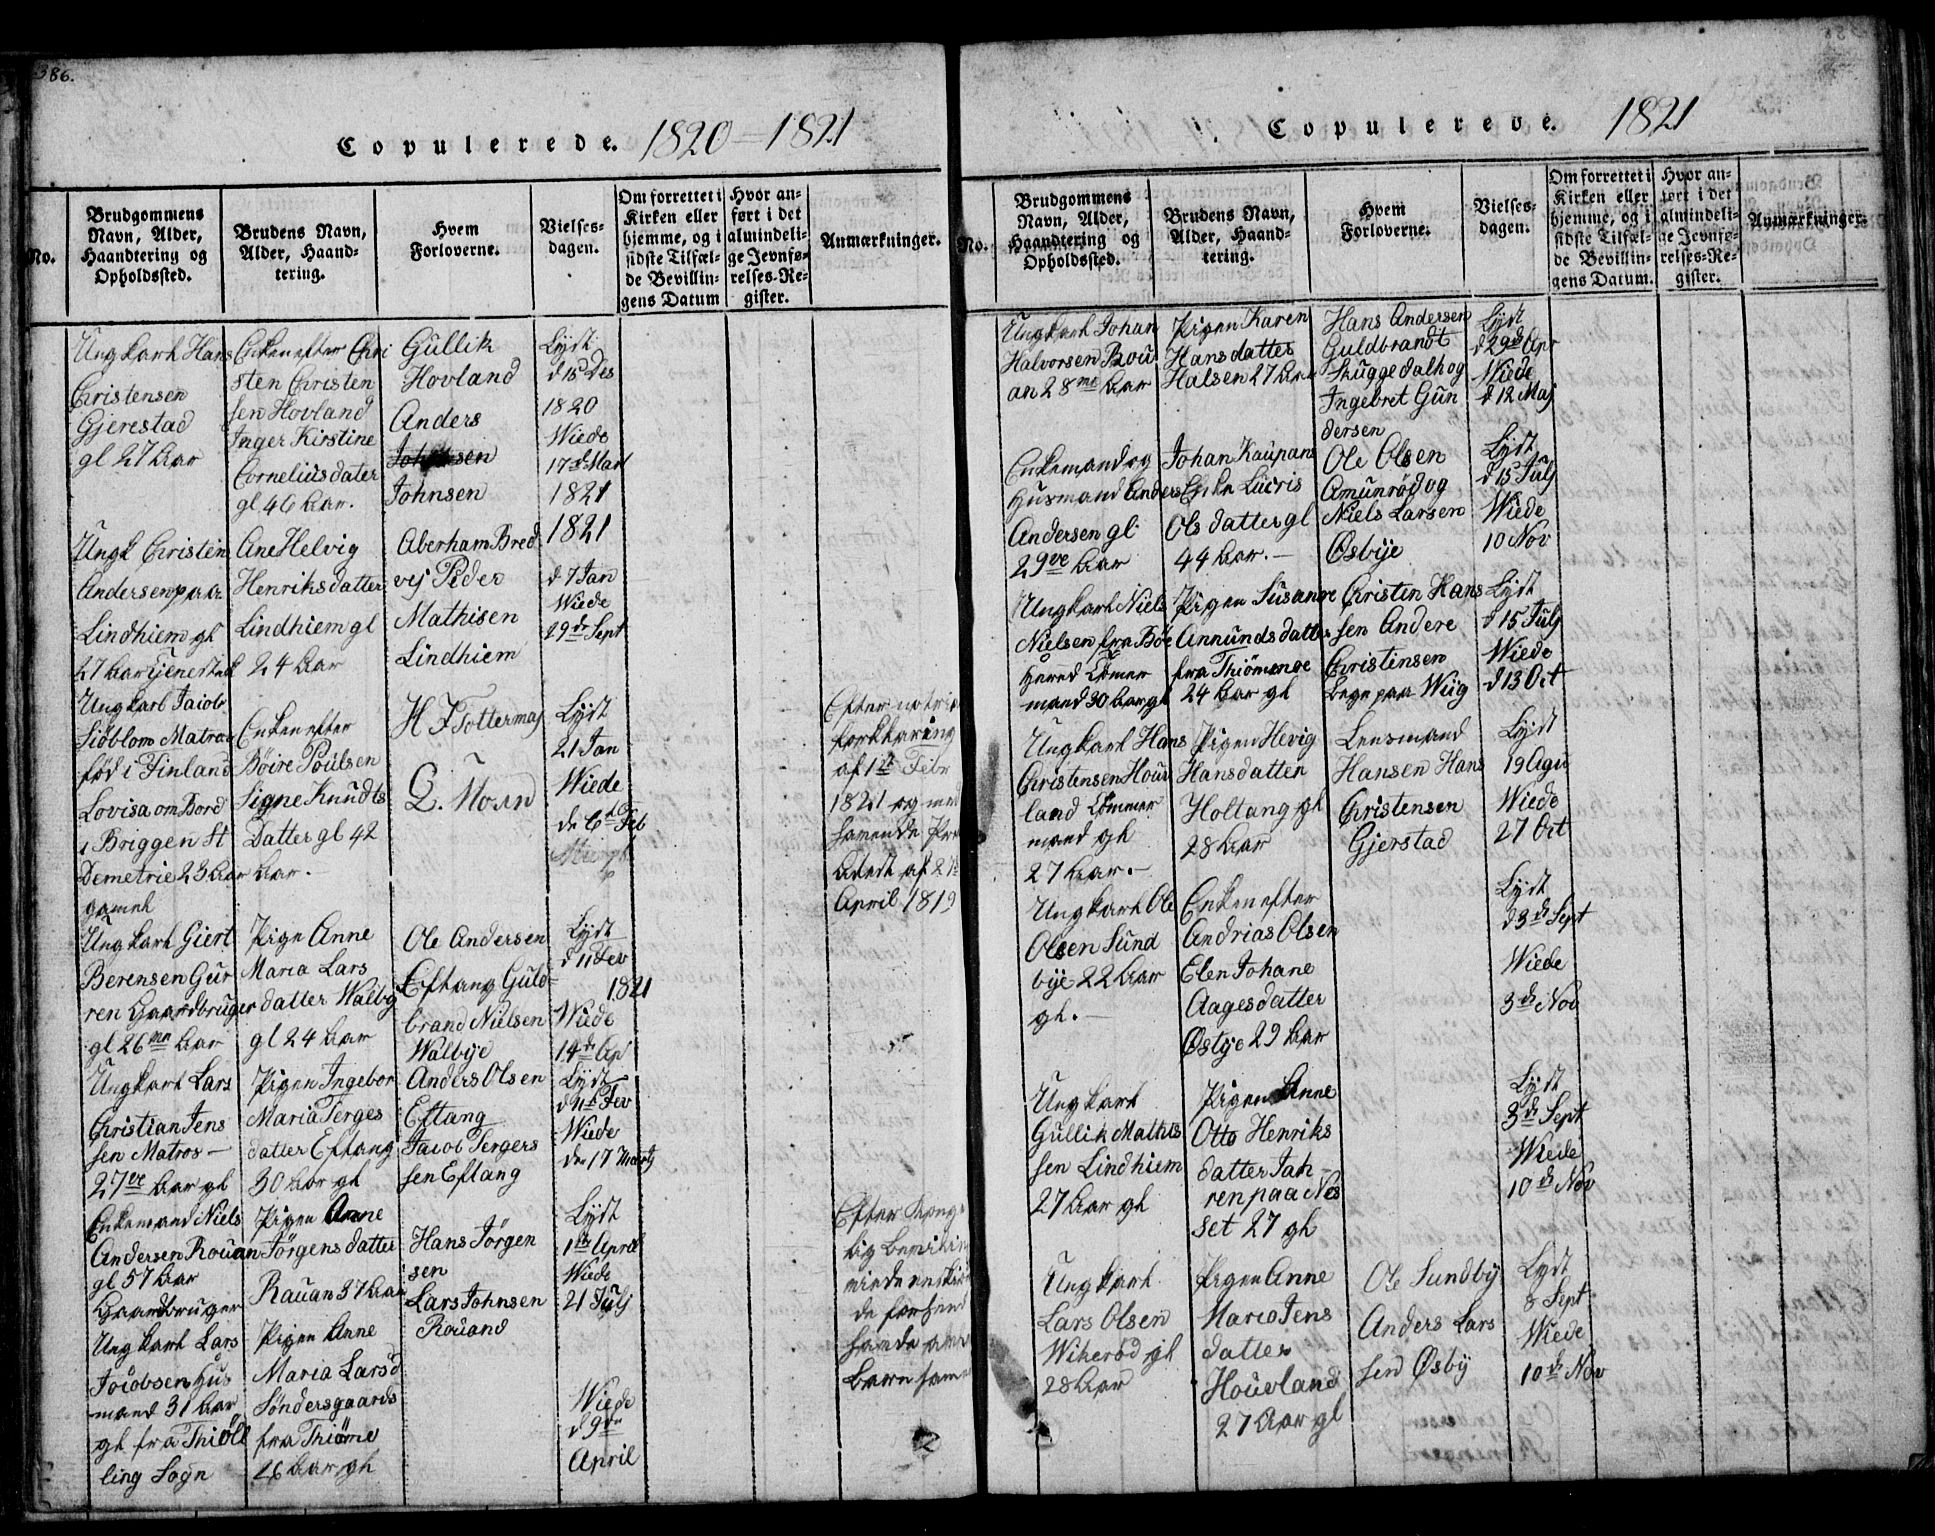 386.
Copulerede. 1820 – 1821
No.
Brudgommens
Navn, Alder,
Haandtering og
Opholdssted.
Brudens Navn,
Alder, Haand-
tering.
Hvem
Forloverne.
Vielses-
dagen.
Om forrettet i
Kirken eller
hjemme, og i
sidste Tilfæl-
de Bevillin-
gens Datum
Hvor an-
ført i det
almindeli-
ge Jevnfø-
relses-Re-
gister.
Anmærkninger.
Ungkarl Hans
Christensen
Gjerestad
gl 27 Aar
Enken efter Chri
sten Christen
sen Hovland
Inger Kirstine
Cornelius dater
gl 46 Aar.
Gullik
Hovland
Anders
Johnsen
Lyst
d 15 Des
1820
Wiede
17de Mart
1821
Ungk Christen
Andersen paa
Lindhiem gl
27 Aar
Ane Helvig
Henriksdatter
Lindhiem gl
24 Aar
Aberham Bred
vej Peder
Mathisen
Lindhiem
1821
d 7 Jan
Wiede
29de Sept
Ungkarl Jaiob
Siöblom Matros
föd i Finland
Lovisa om Bord
i Briggen St
Demetrie 23 Aar
gamel
Enken efter
Böire Poulsen
Signe Knudts
Datter gl 42
Aar.
Lyst
21 Jan
Wiede
de 6te Feb
af 1te Febr
1821
April 1819
Ungkarl Giert
Berensen Gur
ren Gaardbruger
gl 26 Aar
Pige Anne
Maria Lars
datter Walby
gl 24 Aar
Ole Andersen
Eftang Guld=
brand Nielsen
Walbye
Lyst
d 11 Fev
1821
Wiede
14de Ap
Ungkarl Lars
Christian Jens
sen Matros –
27ve Aar gl
Pigen Ingebor
Maria Terges
datter Eftang
30 Aar gl
Anders Olsen
Eftang
Jacob Tergers
sen Eftang
Lyst
d 11te Fev
Wiede
den 17 Martj
Enkemand Niels
Andersen Rouan
gl 57 Aar
Gaardbruger
Pigen Anne
Jörgens datter
Rauan 37 Aar
Hans Jörgen
sen
Lars Johnsen
Rouand
Lyst
1te April
Wiede
21 Julj
Ungkarl Lars
Jacobsen Hus
mand 31 Aar
gl fra Thiöll
ling Sogn
Pigen Anne
Maria Larsd
Söndersgaards
fra Thiöme
26 Aar gl
Wiede
d 9de
April
Copulerede. 1821
No.
Brudgommens
Navn, Alder,
Haandtering og
Opholdssted.
Brudens Navn,
Alder, Haand-
tering.
Hvem
Forloverne.
Vielses-
dagen.
Om forrettet i
Kirken eller
hjemme, og i
sidste Tilfæl-
de Bevillin-
gens Datum.
Hvor an-
ført i det
almindeli-
ge Jevnfø-
relses-Re-
gister.
Anmærkninger.
Ungkarl Johan
Halvorsen Rou
an 28 Aar
Pigen Karen
Hansdatter
Halsen 27 Aar
Hans Andersen
Guldbrandt
Skuggedal og
Ingebret Gun
dersen
Lyst
d 29de Apr
Wiede
d 12 Maj
Enkemand og
Husmand Anders
Andersen gl
29ve Aar
Johan Kaupans
Enke Lucris
Ols datter gl
44 Aar. –
Ole Olsen
Amunröd og
Niels Larsen
Østbye
Lyst
d 15 Julj
Wiede
10 Nov
Ungkarl Niels
Nielsen fra Böe
Hered Tömer
mand 30 Aar gl
Pigen Susanne
Annunds datter
fra Thiömene
24 Aar gl
Christen Hans
sen Andere
Christinsen
Bege paa Wiig
Lyst
d 15 Julj
Wiede
d 13 Oct
Ungkarl Hans
Christensen Hou
land Tömmer
mand gl
27 Aar. –
Pigen Hevig
Hansdatter
Holtang gl
28 Aar
Lensmand
Hansen Hans
Christensen
Gjerstad
Lyst
19 Agu
Wiede
27 Oct
Ungkarl Ole
Olsen Sund
bye 22 Aar
gl. –
Enken efter
Andrias Olsen
Elen Johane
Aagesdatter
29 Aar
Lyst
d 3de Sept
Wiede
3de Nov
Ungkarl
Gullik Mathis
sen Lindhiem
27 Aar gl
Pigen Anne
Otto Henriks
datter Jah
ren paa Nes
set 27 gl
Lyst
3de Sept
Wiede
10de Nov
Ungkarl
Lars Olsen
Wikeröd gl
28 Aar
Pigen Anne
Maria Jens
datter
Houvland
27 Aar gl
Ole Sundby
Anders Lars
sen Østby
Lyst
8 Sept
Wiede
10de Nov